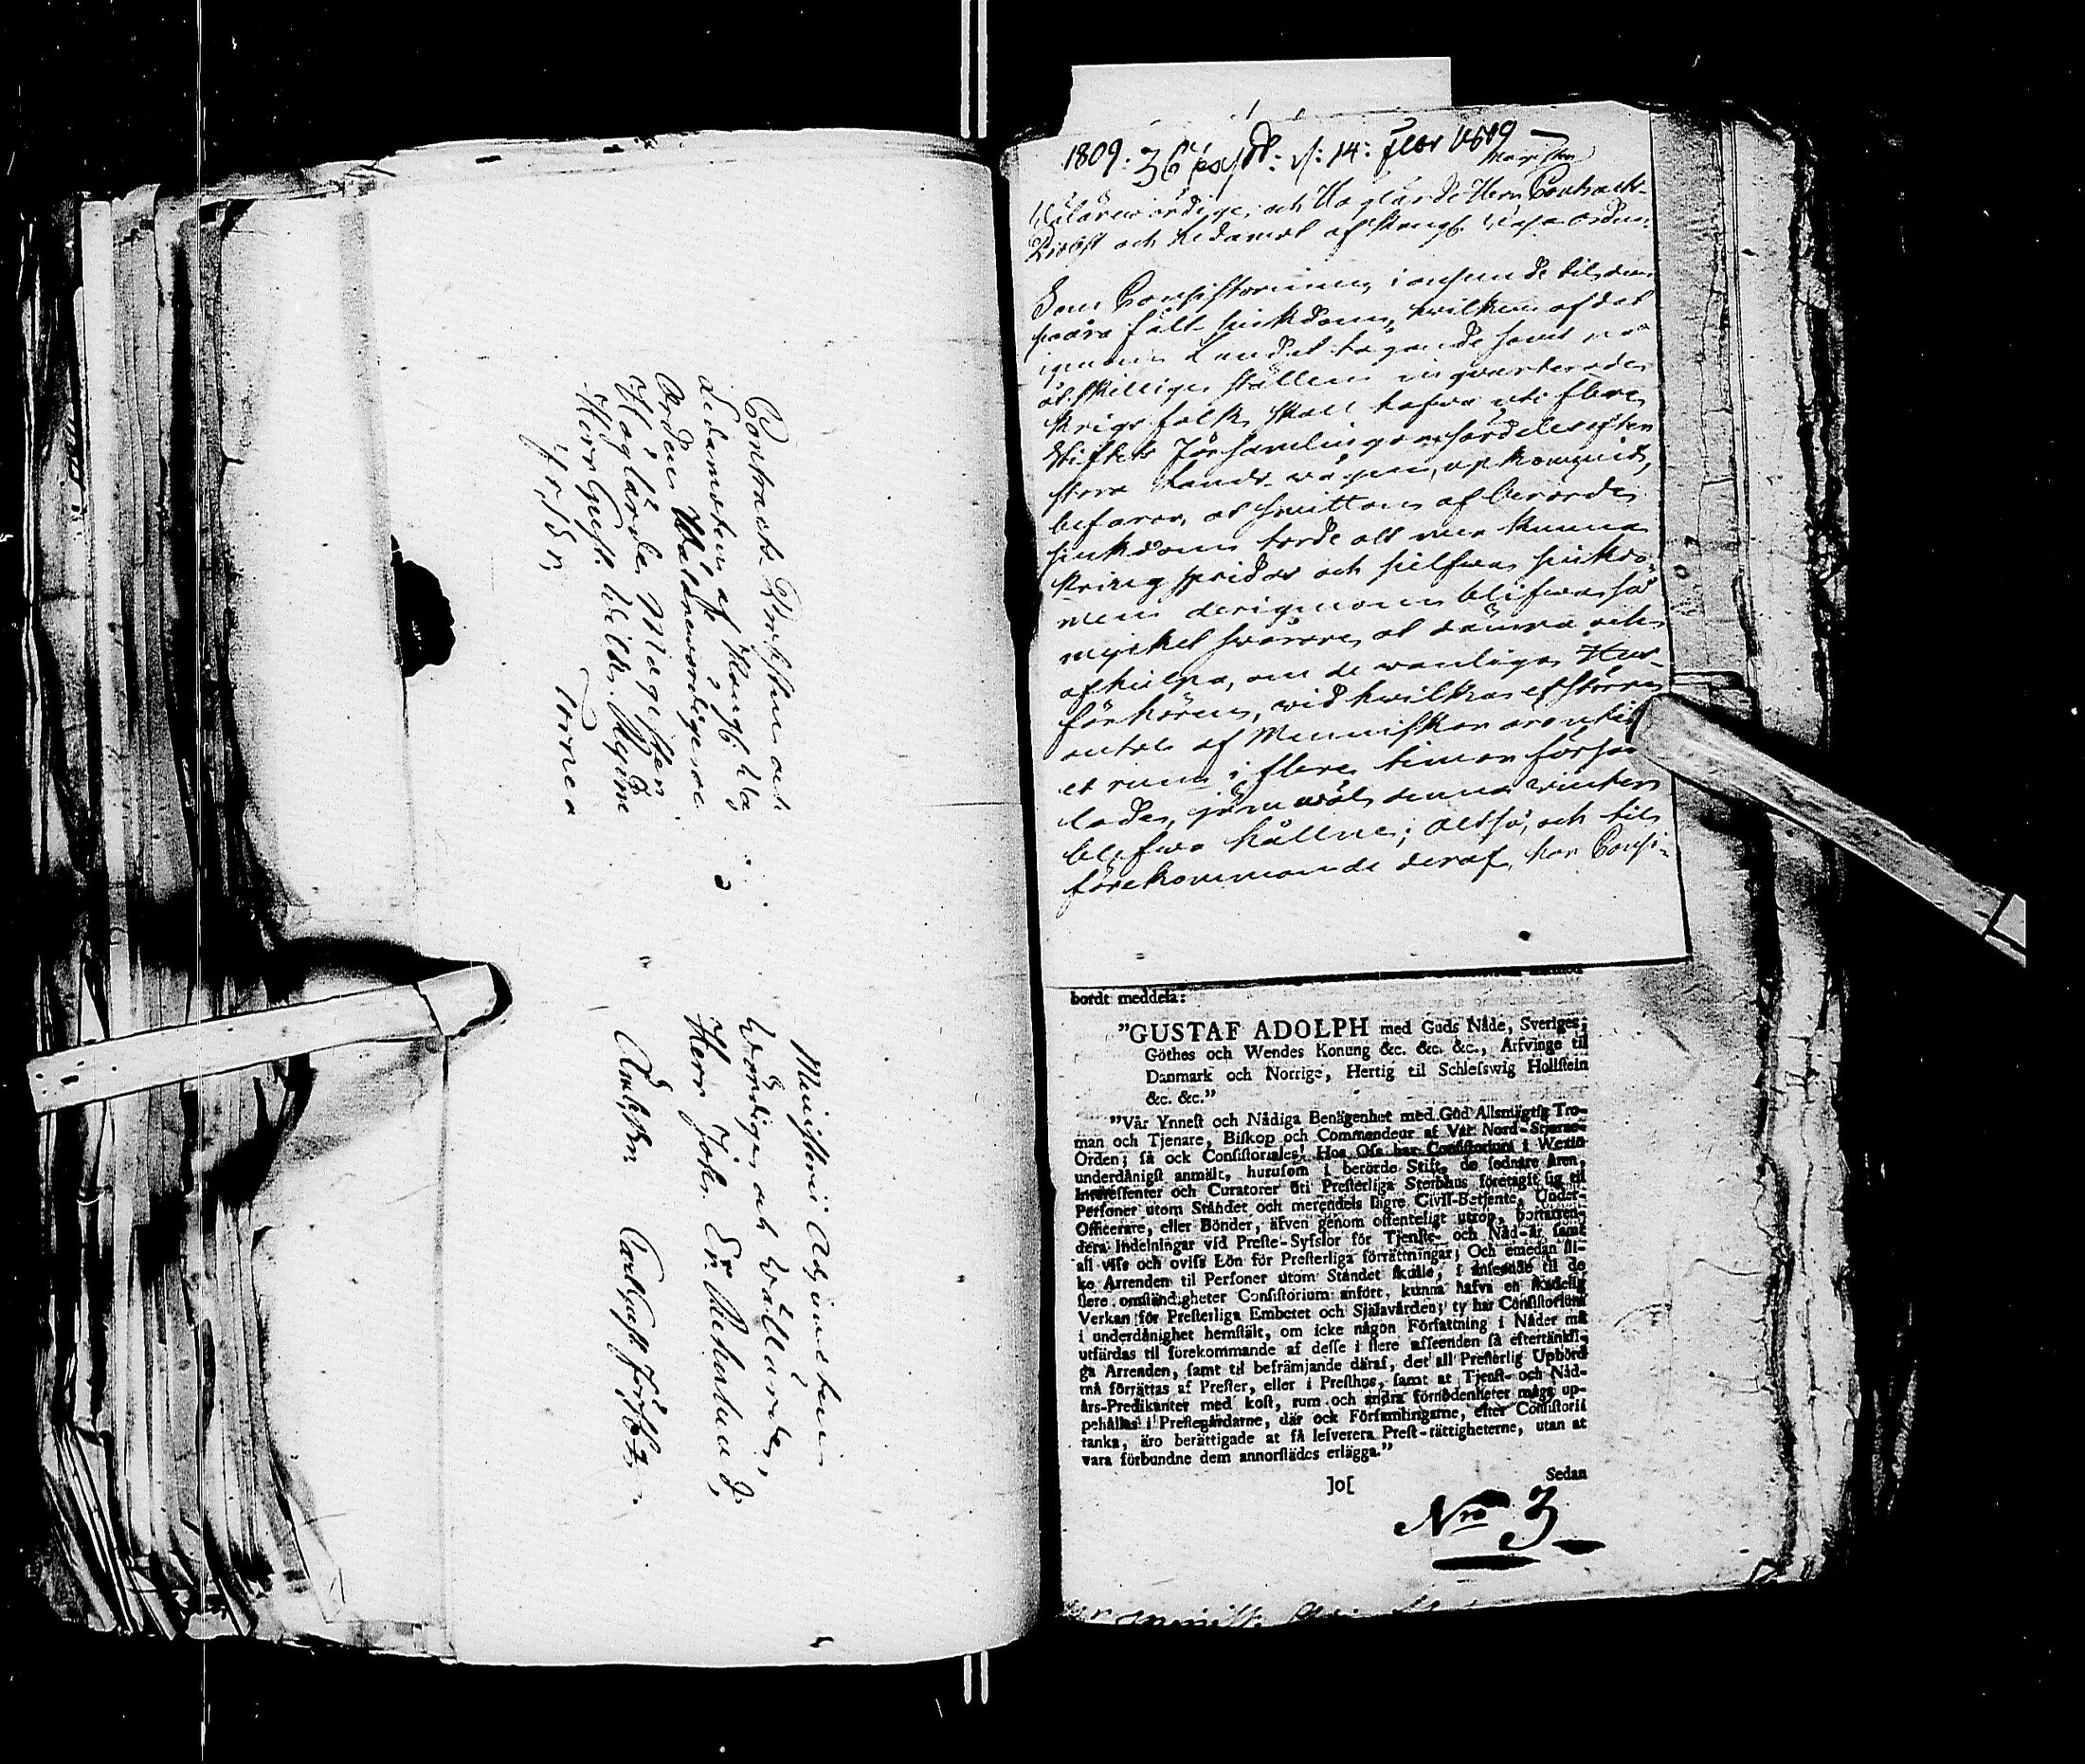 Contracts Prosten och
Ledamoten af Kongl. Wasa
Orden Wälärewördige och
Höglärde Magister
Herr Gust. Wilh.
Torneå
Ministerii Adjuncten
Wördige och Wällärde,
Herr Joh. Er.
1809.
Wälärewördige och Höglärde Herr Contracts-
Prost och Ledamot af Kongl. Wasa Orden.
Som Consistorium i anseende til den
svåra fält sjukdom, hvilken af det
igenom Landet tågande samt på
åtskillige ställen inquarterade
krigs folk skall hafva uti flere
Stiftets Församlingar särdeles efter
stora Lands vägen, upkommit,
befarar, at smittan af berörde
sjukdom torde alt mer kunna
kring spridas och sielfva sjukdo-
men derigenom blifva så
mycket svårare at dämpa och
afhielpa, om de vanliga Hus-
förhören, vid hvilka et större
antal af Menniskor äro uti
et rum i flere timar försam
lade, jemväl denna vinter
blifva hållne; altså, och til
förekommande deraf, har Consi-
bordt meddela:
"GUSTAF ADOLPH med Guds Nåde, Sveriges,
Göthes och Wendes Konung &c. &c. &c., Arfvinge til
Danmark och Norrige, Hertig til Schleſswig Hollſtein
&c. &c."
"Vår Ynneſt och Nådiga Benägenhet med Gud Allsmägtig Tro-
man och Tjenare, Biſkop och Commendeur af Vår Nord-Stjerne-
Orden; få ock Conſiſtoriales; Hos Oſs har Conſiſtorium i Wexiö
underdånigſt anmält, huruſom i berörde Stift, de ſednare åren,
Intereſſenter och Curatorer uti Preſterliga Sterbhus företagit ſig til
Perſoner utom Ståndet och merendels lägre Civil-Betjente, Under-
Officerare, eller Bönder, äfven genom offenteligt utrop, bortarren-
dera Indelningar vid Preſte-Syſslor för Tjenſte- och Nåd-år ſamt
all viſs och oviſs Lön för Preſterliga förrättningar; Och emedan ſli-
ke Arrenden til Perſoner utom Ståndet ſkulle, i anſeende til de
flere omſtändigheter Conſiſtorium anfört, kunna hafva en ſkadelig
Verkan för Preſterliga Embetet och Själavården; ty har Conſiſtorium
i underdånighet hemſtält, om icke någon Författning i Nåder må
utfärdas til förekommande af desſe i flere afſeenden ſå eftertänkli-
ga Arrenden, ſamt til befrämjande däraf, det all Preſterlig Upbörd
må förrättas af Preſter, eller i Preſthus, ſamt at Tjenſt- och Nåd-
års-Predikanter med koſt, rum och andra förnödenheter måge up-
pehållas i Preſtegårdarne, där ock Förſamlingarne, efter Conſiſtorii
tanka, äro berättigade at få lefverera Preſt-rättigheterne, utan at
vara förbundne dem annorſtädes erlägga."
Sedan
]o[
Nro 3